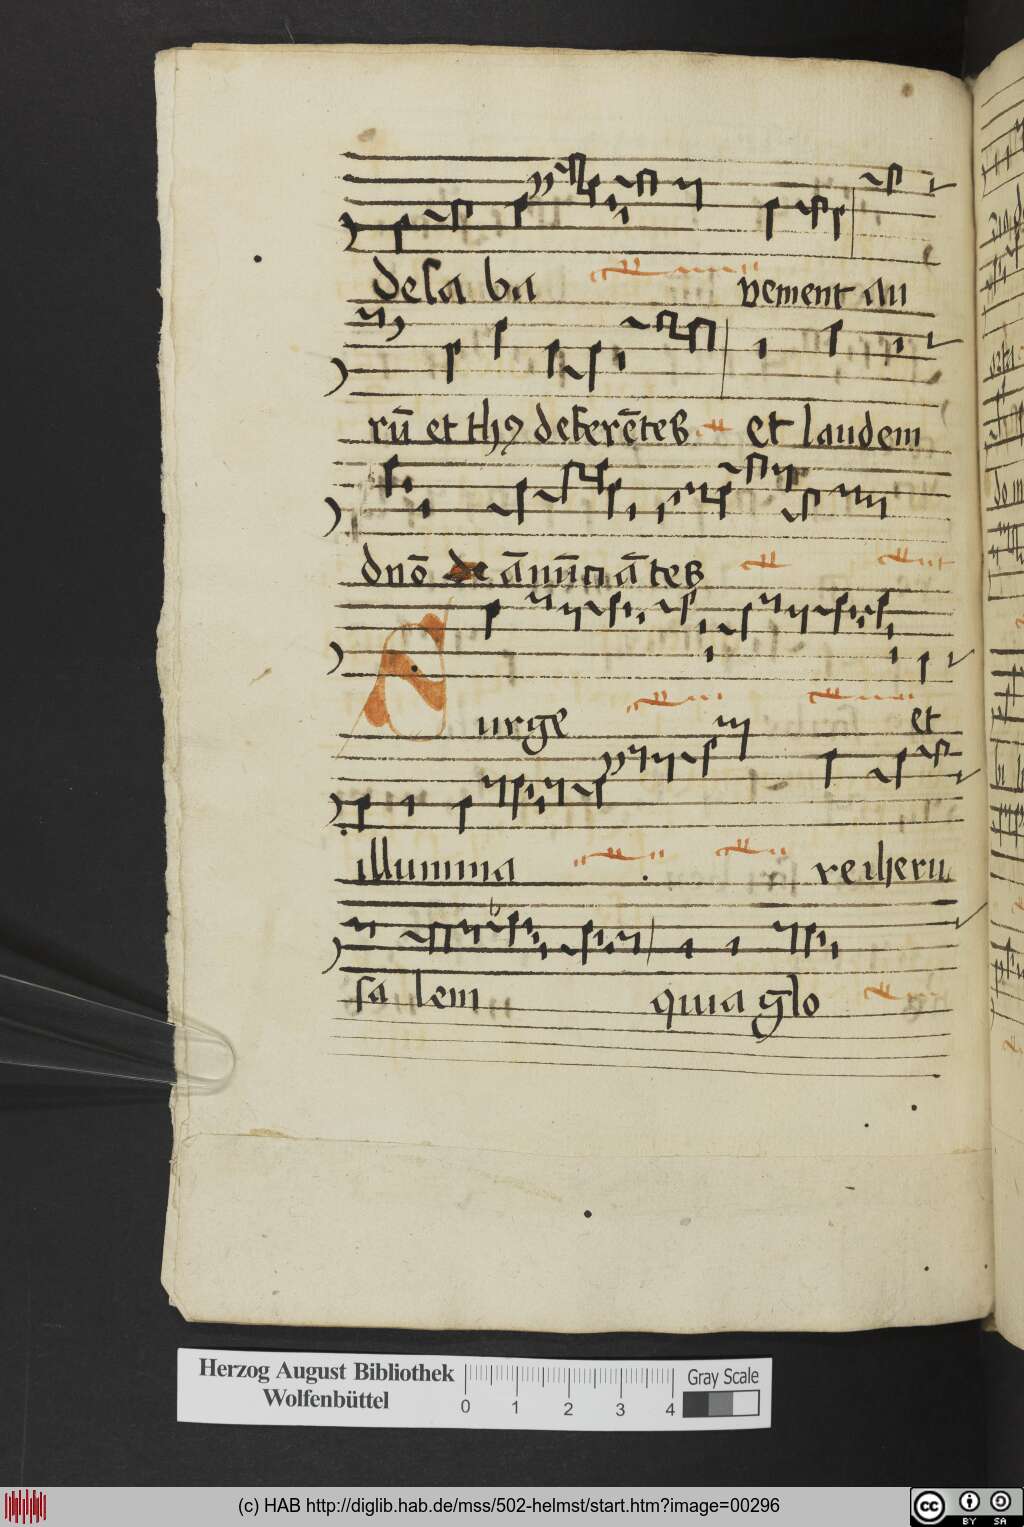 de saba vement au
rū et thꝯ deferētes et laudem
dno̅ de ānūciātes
Surge et
illumina re iheru
salem quia glo
Herzog August Bibliothek
Wolfenbüttel
0 1 2 3 4
Gray Scale
(c) HAB http://diglib.hab.de/mss/502-helmst/start.htm?image=00296
cc BY SA